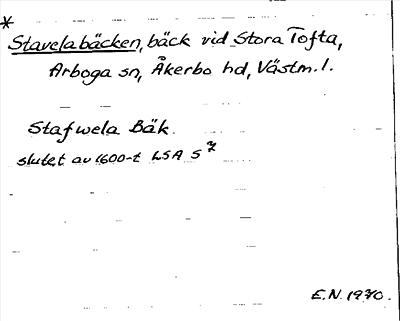 *
Stavelabäcken, bäck vid Stora Tofta,
Arboga sn, Åkerbo hd, Västm. l.
Stafwela Bäk.
slutet av 1600-t LSA S 7
E.N. 1970.